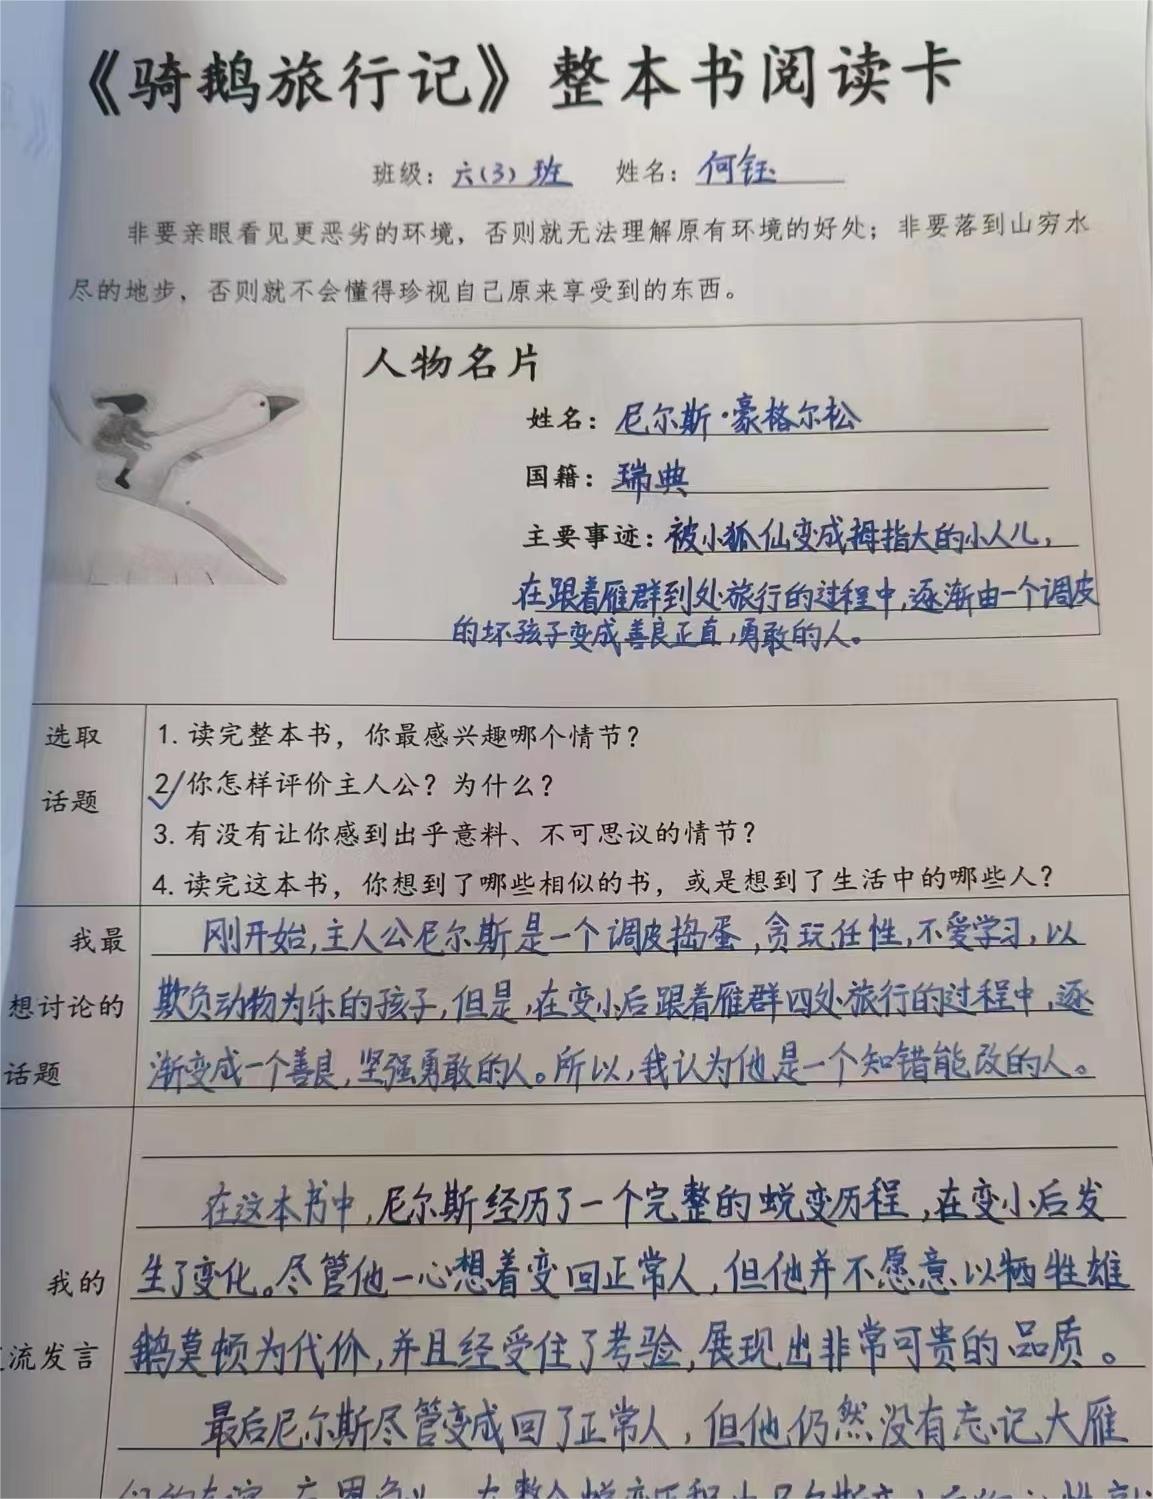 《骑鹅旅行记》整本书阅读卡
班级：六(3)班 姓名：何钰
非要亲眼看见更恶劣的环境，否则就无法理解原有环境的好处；非要落到山穷水
尽的地步，否则就不会懂得珍视自己原来享受到的东西。
人物名片
姓名：尼尔斯·豪格尔松
国籍：瑞典
主要事迹：被小狐仙变成拇指大的小人儿，
在跟着雁群到处旅行的过程中,逐渐由一个调皮
的坏孩子变成善良正直,勇敢的人。
选取
话题
1. 读完整本书，你最感兴趣哪个情节？
2✓你怎样评价主人公？为什么？
3. 有没有让你感到出乎意料、不可思议的情节？
4. 读完这本书，你想到了哪些相似的书，或是想到了生活中的哪些人？
我最
想讨论的
话题
刚开始,主人公尼尔斯是一个调皮捣蛋,贪玩任性,不爱学习,以
欺负动物为乐的孩子,但是,在变小后跟着雁群四处旅行的过程中,逐
渐变成一个善良,坚强勇敢的人。所以,我认为他是一个知错能改的人。
我的
流发言
在这本书中,尼尔斯经历了一个完整的蜕变历程,在变小后发
生了变化。尽管他一心想着变回正常人,但他并不愿意以牺牲雄
鹅莫顿为代价,并且经受住了考验,展现出非常可贵的品质。
最后尼尔斯尽管变成回了正常人,但他仍然没有忘记大雁